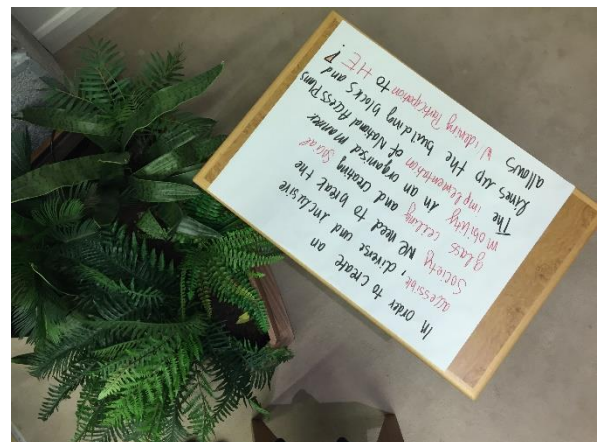 In order to create an
accessible, diverse and inclusive
society we need to break the
glass ceiling and creating social
mobility in an organised manner
The implementation of National Access Plans
lines up the building blocks and
allows widening Participation to HE!